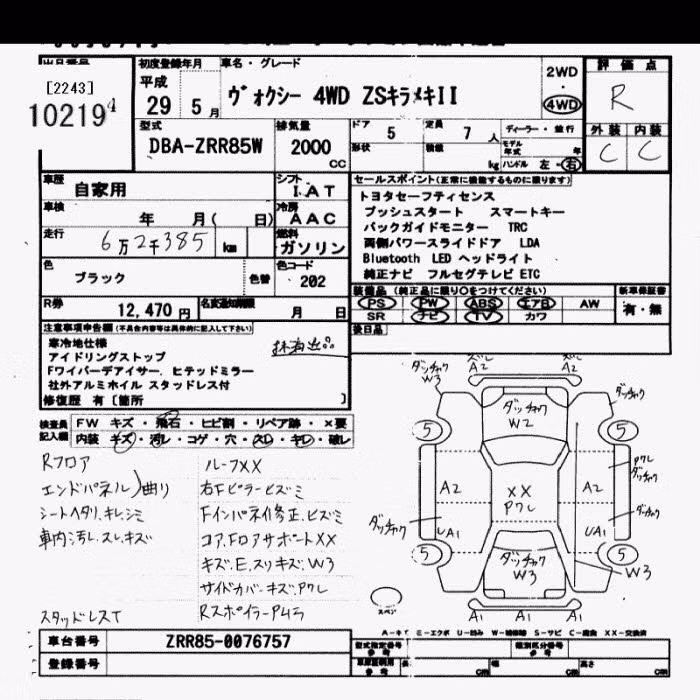 出品番号
[2243]
10219 4
初度登録年月
平成
29 5 月
車名・グレード
ヴォクシー 4WD ZSキラメキII
2WD
・
4WD
評価点
R
外装 内装
C C
型式
DBA-ZRR85W
排気量
2000
CC
ドア 5
形状
定員 7 人
積載 kg
ディーラー・並行
モデル年式 年
ハンドル 左・右
車歴
自家用
シフト
I.AT
車検
年 月( 日)
冷房
AAC
走行
6万2千385 km
燃料
ガソリン
色
ブラック
色替
色コード
202
R券
12,470 円
名変通知期限
月 日
セールスポイント(正常に機能するものに限ります)
トヨタセーフティセンス
プッシュスタート スマートキー
バックガイドモニター TRC
両側パワースライドドア LDA
Bluetooth LED ヘッドライト
純正ナビ フルセグテレビ ETC
装備品 (純正品に限り○をつけてください)
新車保証書
PS PW ABS エアB AW
SR ナビ TV カワ
有・無
後日品
注意事項申告欄(不具合内容等は具体的に記入して下さい)
寒冷地仕様
アイドリングストップ
Fワイパーデアイサー、ヒテッドミラー
社外アルミホイル スタッドレス付
修復歴 有 [箇所 ]
検査員
記入欄
FW キズ・飛石・ヒビ割・リペア跡・×要
内装 キズ・汚レ・コゲ・穴・スレ・キレ・破レ
Rフロア
エンドパネル)曲り
シートヘタリ、キレ、シミ
車内汚レ、スレ、キズ
スタッドレスT
ルーフXX
右Fピラーヒズミ
Fインパネ修正、ヒズミ
コア、Fロアサポート XX
キズ、E、スリキズ、W3
サイドカバーキズ、Pクレ
RスポイラーPムラ
ダッチャク
W3
ズレ
A2
ズレ
A2
ダッチャク
ダッチャク
W2
5
5
A2
XX
Pクレ
A2
Pクレ
ダッチャク
ダッチャク
UA1
UA1
ダッチャク
5
ダッチャク
W3
5
W3
スペア
A1
A1
A1
A-キズ E-エクボ U-凹み W-補修跡 S-サビ C-腐食 XX-交換済
車台番号
ZRR85-0076757
登録番号
型式指定番号
参考
類別区分番号
参考
車庫証明用
参考
長 cm
幅 cm
高さ cm